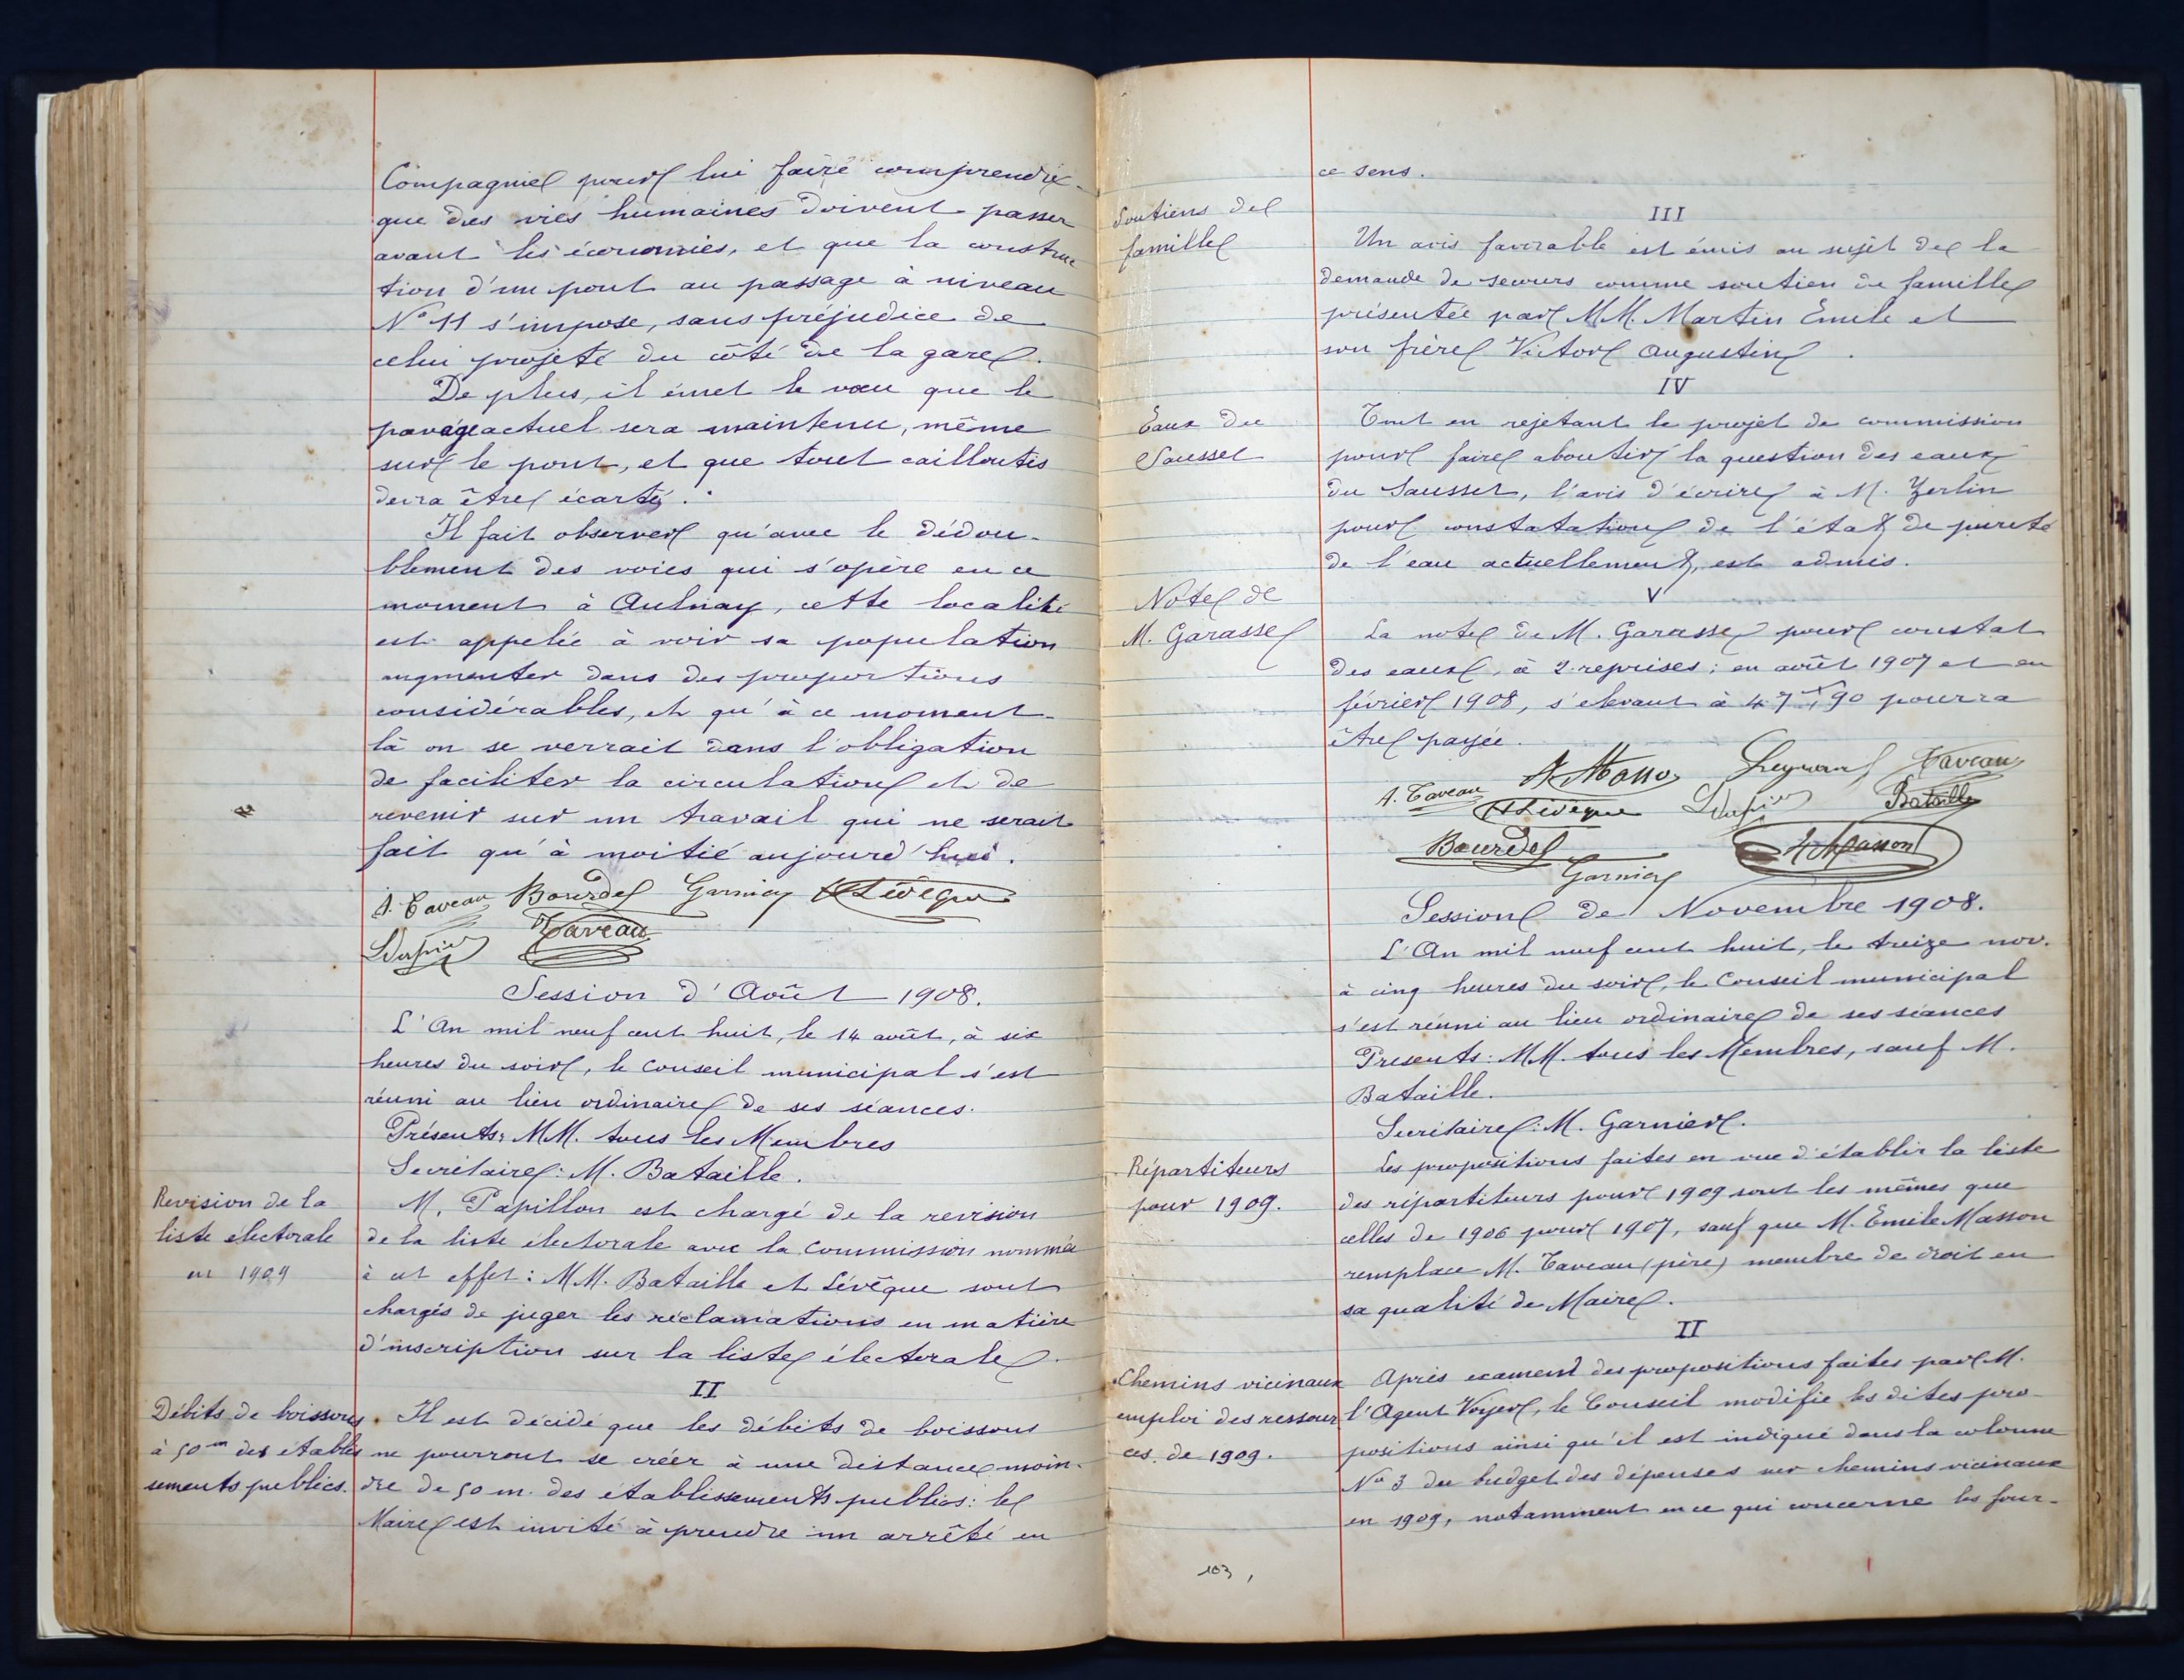 Compagnie pour lui faire comprendre
que des vies humaines doivent passer
avant les économies, et que la construc
tion d'un pont au passage à niveau
N° 11 s'impose, sans préjudice de
celui projeté du côté de la gare.
De plus, il émet le vœu que le
pavage actuel sera maintenu, même
sur le pont, et que tout cailloutis
devra être écarté.
Il fait observer qu'avec le dédou-
blement des voies qui s'opère en ce
moment à Aulnay, cette localité
est appelée à voir sa population
augmenter dans des proportions
considérables, et qu'à ce moment-
là on se verrait dans l'obligation
de faciliter la circulation et de
revenir sur un travail qui ne serait
fait qu'à moitié aujourd'hui.
A. Taveau Bourdel Garnier Lévêque
Taveau
Session d'Août 1908.
L'An mil neuf cent huit, le 14 août, à six
heures du soir, le Conseil municipal s'est
réuni au lieu ordinaire de ses séances.
Présents: MM. tous les Membres
Secrétaire: M. Bataille.
Revision de la
liste électorale
en 1909
M. Papillon est chargé de la revision
de la liste électorale avec la Commission nommée
à cet effet: MM. Bataille et Lévêque sont
chargés de juger les réclamations en matière
d'inscription sur la liste électorale.
II
Débits de boissons
à 50m des établis
sements publics.
Il est décidé que les débits de boissons
ne pourront se créer à une distance moin-
dre de 50 m. des établissements publics: le
Maire est invité à prendre un arrêté en
ce sens.
III
Soutiens de
famille
Un avis favorable est émis au sujet de la
demande de secours comme soutien de famille
présentée par MM. Martin Emile et
son frère Victor Augustin.
IV
Eaux du
Sausset
Tout en rejetant le projet de commission
pour faire aboutir la question des eaux
du Sausset, l'avis d'écrire à M. Zerlin
pour constatation de l'état de pureté
de l'eau actuellement, est admis.
V
Note de
M. Garasse
La note de M. Garasse pour constat
des eaux, à 2 reprises; en août 1907 et en
février 1908, s'élevant à 47f,90 pourra
être payée.
A. Taveau Taveau
Lévêque Bataille
Bourdel Masson
Garnier
Session de Novembre 1908.
L'An mil neuf cent huit, le treize nov.
à cinq heures du soir, le Conseil municipal
s'est réuni au lieu ordinaire de ses séances
Présents: MM. tous les Membres, sauf M.
Bataille.
Secrétaire: M. Garnier.
Répartiteurs
pour 1909.
Les propositions faites en vue d'établir la liste
des répartiteurs pour 1909 sont les mêmes que
celles de 1906 pour 1907, sauf que M. Emile Masson
remplace M. Taveau (père) membre de droit en
sa qualité de Maire.
II
Chemins vicinaux
emploi des ressour
ces de 1909.
Après examen des propositions faites par M.
l'Agent Voyer, le Conseil modifie les dites pro-
positions ainsi qu'il est indiqué dans la colonne
No 3 du budget des dépenses sur chemins vicinaux
en 1909, notamment en ce qui concerne les four-
103